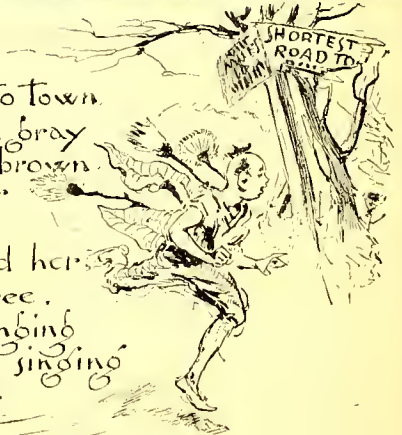 SHORTEST
ROAD TO
to town
gray
brown
d her
ee.
nging
singing